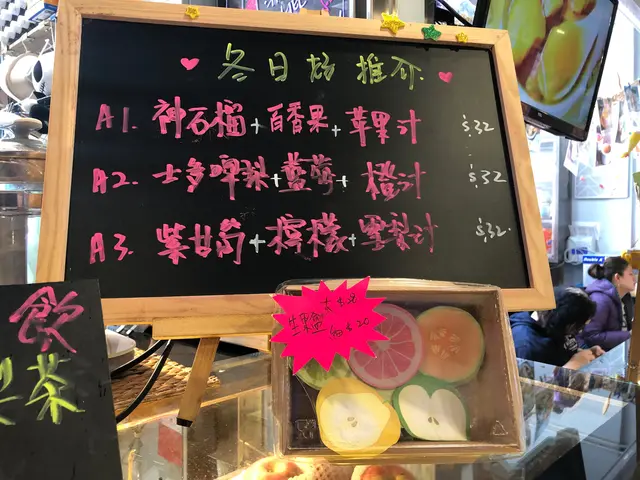 冬日好推介
A1. 神石榴+百香果+苹果汁 $32
A2. 士多啤梨+蓝莓+橙汁 $32
A3. 紫甘筍+檸檬+雪梨汁 $32
生果盒 大$28
細$20
飲
茶